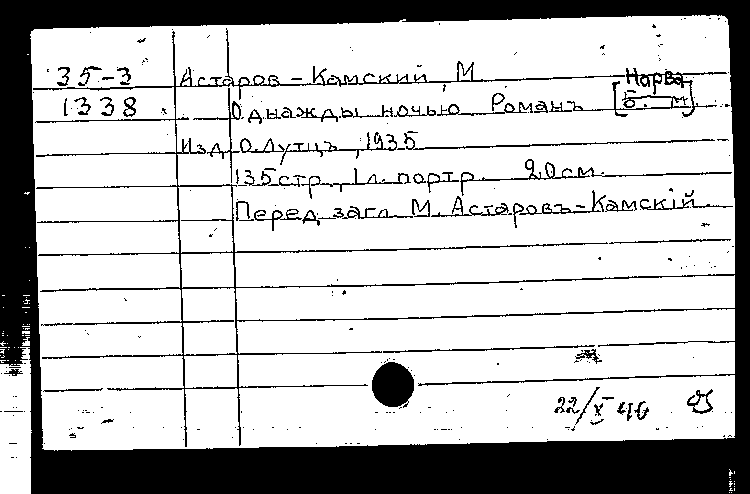 35-3 Астаров-Камский, М.
Нарва
1338 Однажды ночью Романъ [Б. М.]
Изд. О. Лутцъ, 1935
135 стр., 1 л. портр. 20 см.
Перед загл. М. Астаровъ-Камскій.
22/X 40